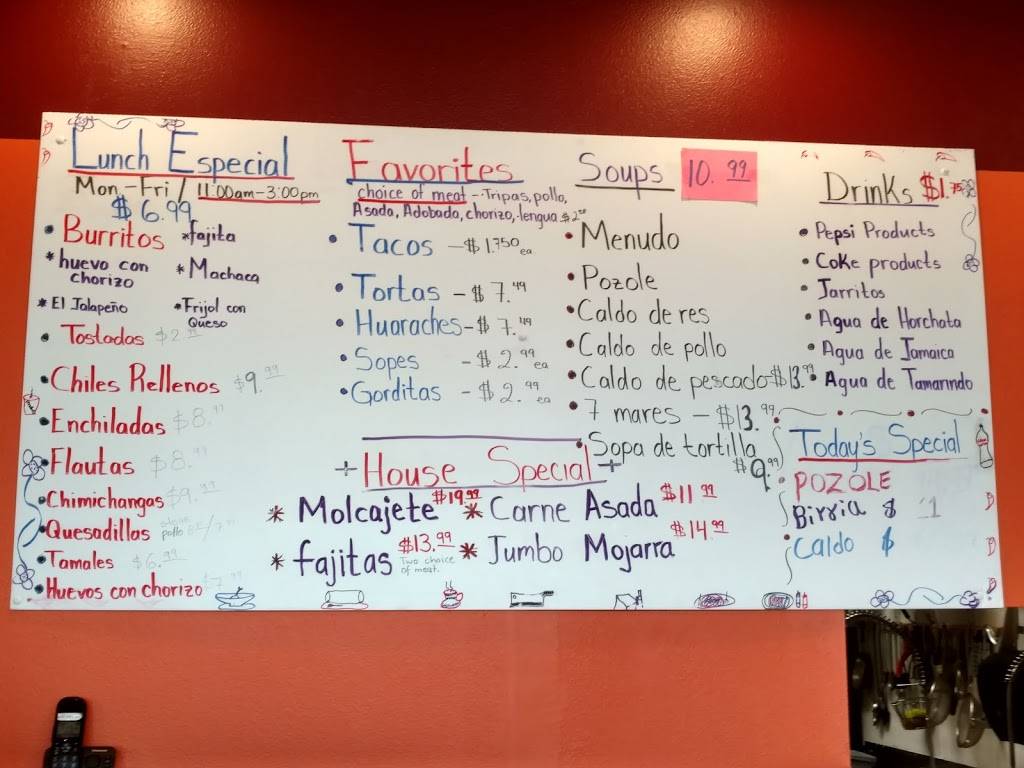 Lunch Especial
Mon.-Fri / 11:00am-3:00pm
$6.99
• Burritos *fajita
* huevo con chorizo * Machaca
* El Jalapeño * Frijol con Queso
• Tostadas $2.99
• Chiles Rellenos $9.99
• Enchiladas $8.
• Flautas $8.
• Chimichangas $9.99
• Quesadillas
• Tamales $6.99
• Huevos con chorizo
Favorites
choice of meat -- Tripas, pollo,
Asada, Adobada, chorizo, lengua
• Tacos — $1.750 ea
• Tortas - $7.49
• Huaraches - $7.49
• Sopes - $2.99 ea
• Gorditas - $2.99 ea
Soups 10.99
• Menudo
• Pozole
• Caldo de res
• Caldo de pollo
• Caldo de pescado - $13.99
• 7 mares — $13.99
• Sopa de tortilla
$9.99
+ House Special +
* Molcajete $19.99 * Carne Asada $11.99
* fajitas $13.99 * Jumbo Mojarra $14.99
Two choice
of meat.
Drinks $1.75
• Pepsi Products
• Coke products
• Jarritos
• Agua de Horchata
• Agua de Jamaica
• Agua de Tamarindo
Today's Special
• POZOLE
Birria $
• Caldo $